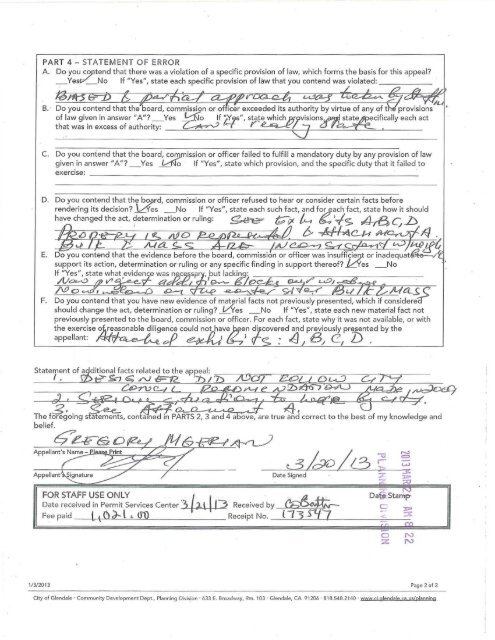 PART 4 – STATEMENT OF ERROR
A. Do you contend that there was a violation of a specific provision of law, which forms the basis for this appeal?
Yes ✓ No If "Yes", state each specific provision of law that you contend was violated:
BIASED & partial approach was taken by staff
B. Do you contend that the board, commission or officer exceeded its authority by virtue of any of the provisions
of law given in answer "A"? Yes ✓ No If "Yes", state which provisions, and state specifically each act
that was in excess of authority: Can't really state.
C. Do you contend that the board, commission or officer failed to fulfill a mandatory duty by any provision of law
given in answer "A"? Yes ✓ No If "Yes", state which provision, and the specific duty that it failed to
exercise:
D. Do you contend that the board, commission or officer refused to hear or consider certain facts before
rendering its decision? ✓ Yes No If "Yes", state each such fact, and for each fact, state how it should
have changed the act, determination or ruling: SEE Exhibits A, B, C, D
PROPERTY IS NO Represented & ATTACHMENT A
BULK & MASS ARE INCONSISTANT w/
E. Do you contend that the evidence before the board, commission or officer was insufficient or inadequate to
support its action, determination or ruling or any specific finding in support thereof? ✓ Yes No
If "Yes", state what evidence was necessary, but lacking:
New project addition blocks our windows
No windows on the easter side, BULK & MASS
F. Do you contend that you have new evidence of material facts not previously presented, which if considered
should change the act, determination or ruling? ✓ Yes No If "Yes", state each new material fact not
previously presented to the board, commission or officer. For each fact, state why it was not available, or with
the exercise of reasonable diligence could not have been discovered and previously presented by the
appellant: Attached exhibits: A, B, C, D.
Statement of additional facts related to the appeal:
1. DESIGNER DID NOT FOLLOW CITY
COUNCIL RECOMENDATION MADE, in 2009
2. SERIOUS situation, to here by city.
3. See Attachment A.
The foregoing statements, contained in PARTS 2, 3 and 4 above, are true and correct to the best of my knowledge and
belief.
GREGORY MGERIAN
Appellant's Name – Please Print
3/20/13
Appellant's Signature Date Signed
FOR STAFF USE ONLY Date Stamp
Date received in Permit Services Center 3/21/13 Received by
Fee paid 1,021.00 Receipt No. 173547
PLANNING DIVISION
2013 MAR 22 AM 8 22
1/3/2013 Page 2 of 2
City of Glendale · Community Development Dept., Planning Division · 633 E. Broadway, Rm. 103 · Glendale, CA 91206 · 818.548.2140 · www.ci.glendale.ca.us/planning